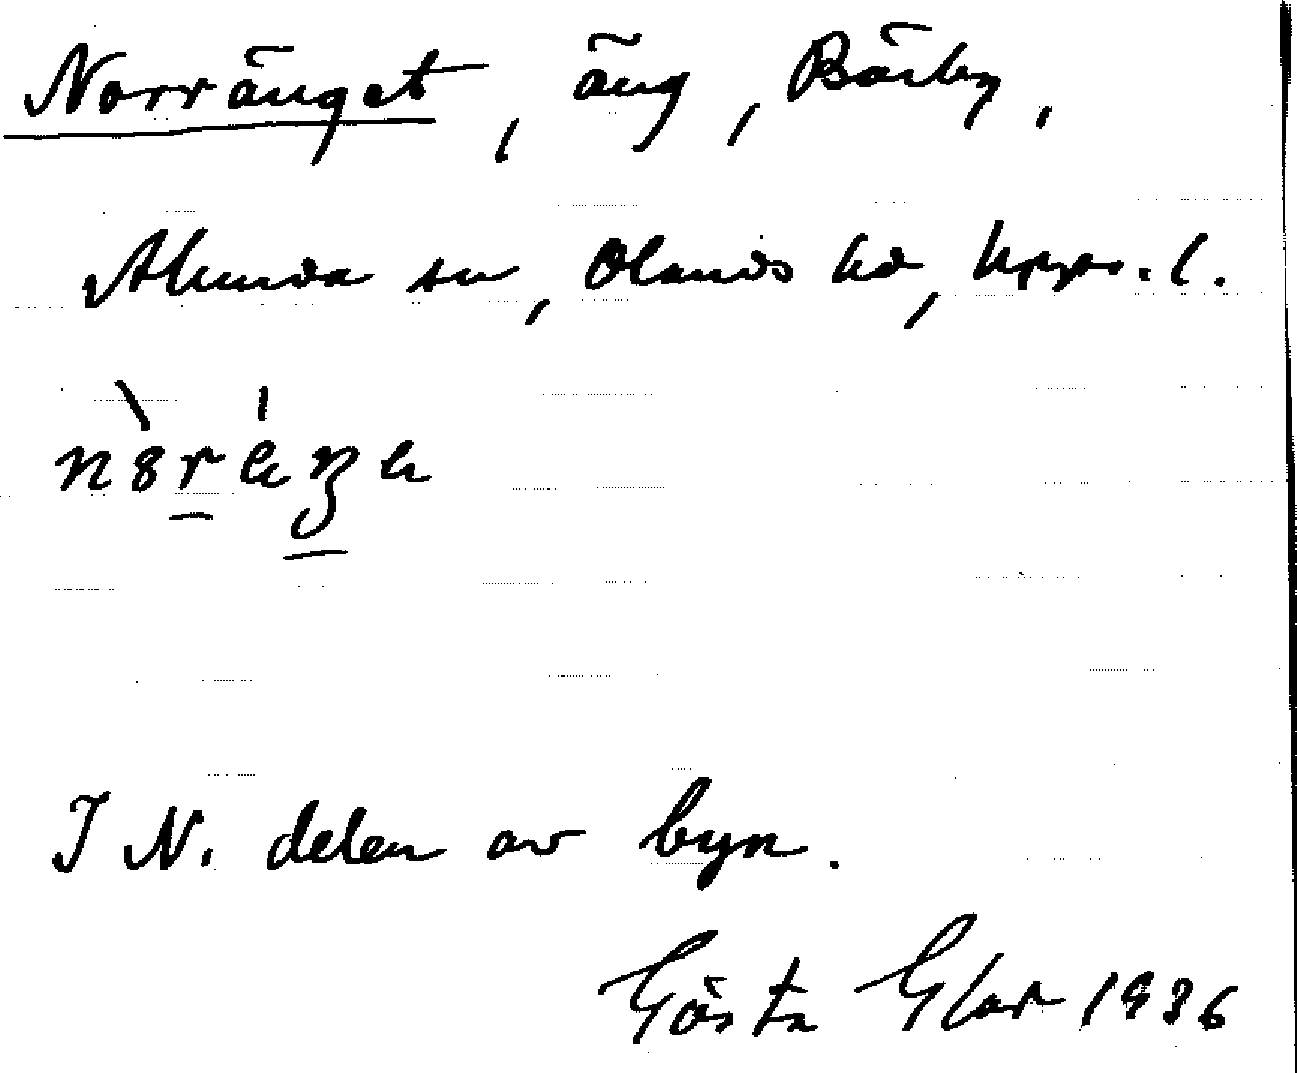 Norränget, äng, Bärby,
Alunda sn, Olands hd, Upps. l.
I N. delen av byn.
Gösta Elar 1936